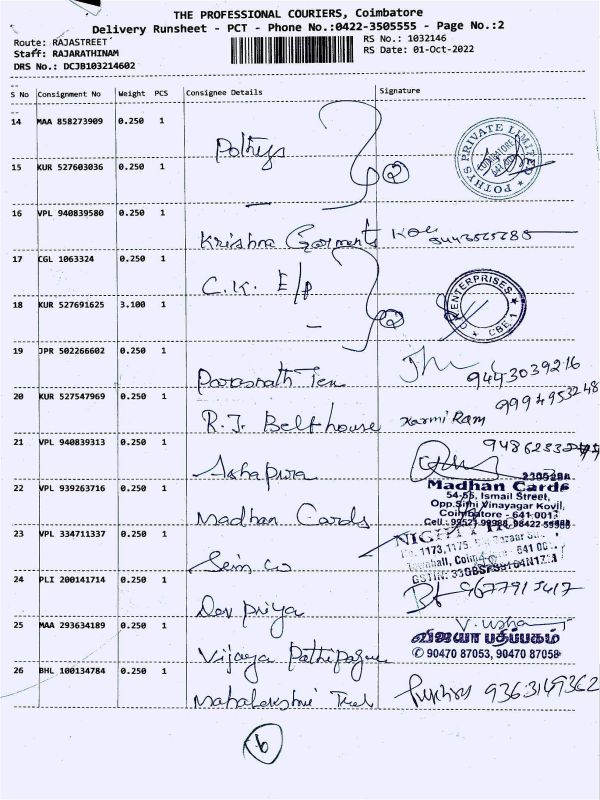 THE PROFESSIONAL COURIERS, Coimbatore
Delivery Runsheet - PCT - Phone No.:0422-3505555 - Page No.:2
Route: RAJASTREET
RS No.: 1032146
Staff: RAJARATHINAM
RS Date: 01-Oct-2022
DRS No.: DCJB103214602
S No Consignment No Weight PCS Consignee Details Signature
14 MAA 858273909 0.250 1 Pothys
POTHYS PRIVATE LIMITED
COIMBATORE
15 KUR 527603036 0.250 1
2
16 VPL 940839580 0.250 1 Krishna Garments
17 CGL 1063324 0.250 1 C.K. E/p
18 KUR 527691625 3.100 1
2
ENTERPRISES
CBE-1
19 JPR 502266602 0.250 1 Parasnath Tex 9443039216
20 KUR 527547969 0.250 1 R.J. Belt house Karmi Ram 9994953248
21 VPL 940839313 0.250 1 Ashapura
22 VPL 939263716 0.250 1 Madhan Cards
Madhan Cards
54-55, Ismail Street,
Opp.Sithi Vinayagar Kovil,
Coimbatore - 641 001
23 VPL 334711337 0.250 1
24 PLI 200141714 0.250 1 Dev priya
25 MAA 293634189 0.250 1 Vijaya Pathipagam
V. Usha
விஜயா பதிப்பகம்
90470 87053, 90470 87058
26 BHL 100134784 0.250 1 Mahalakshmi 9363149362
6